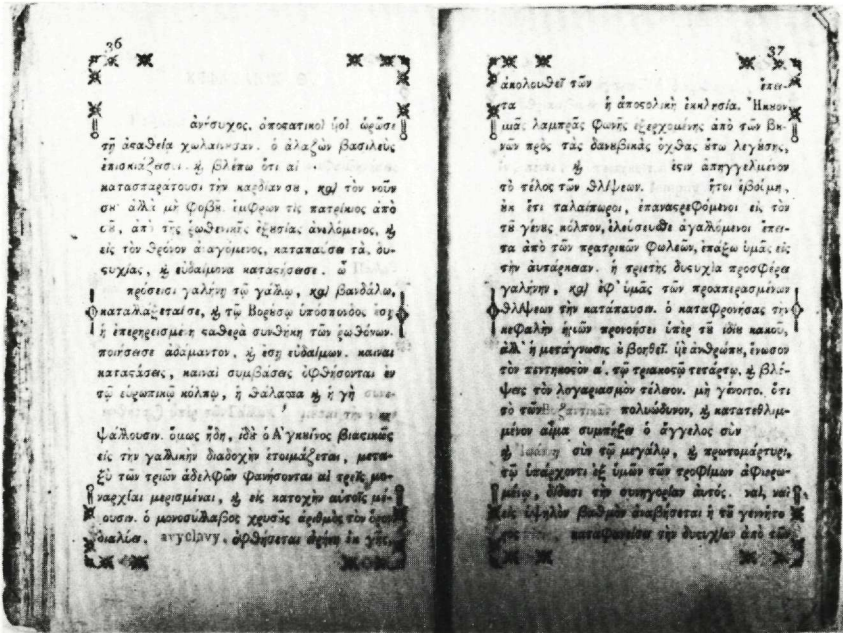 36
ἀνήσυχος. ἀποςατικοὶ ὡρῶσε
τῇ ἀςαθεία χωλαίνησαν. ὁ ἀλαζὼν βασιλεὺς
ἐπισκιάζεσαι. ϗ βλέπω ὅτι αἱ
κατασπαράττουσι τὴν καρδίαν σȣ, ϗαὶ τὸν νοῦν
σȣ ἀλλὰ μὴ φοβȣ. ἔμφρων τὶς πατρίκιος ἀπὸ
σȣ, ἀπὸ τῆς ἐξȣσίας ἀνελόμενος, ϗ
εἰς τὸν θρόνον ἀναγόμενος, καταπαύσει τὰ. δυ-
ςυχίας, ϗ εὐδαίμονα καταςήσωσε. ὦ
πρόσεισι γαλήνη τῷ γάλλῳ, ϗαὶ βανδάλῳ,
καταλλάξεταί σε, ϗ τῷ Βορύσῳ ὑπόσπονδος ἔςῃ
ἡ ςαθερὰ συνθήκη τῶν ῥωθόνων.
ποιήσειε ἀδάμαντον, ϗ ἔςῃ εὐδαίμων. καιναὶ
καταςάσεις, καιναὶ συμβάσεις ὀφθήσονται ἐν
τῷ εὐρωπικῷ κόλπῳ, ἡ θάλασσα ϗ ἡ γῆ
ψάλλουσιν. ὅμως ἤδη, ἰδȣ ὁ Ἀγκῖνος βιαςικῶς
εἰς τὴν γαλλικὴν διαδοχὴν ἑτοιμάζεται, μετα-
ξὺ τῶν τριῶν ἀδελφῶν φανήσονται αἱ τρεῖς μο-
ναρχίαι μερισμέναι, ϗ εἰς κατοχὴν αὐτοῖς μέ-
ουσιν. ὁ μονοσύλλαβος χρυσὸς ἀριθμὸς τὸν ὅρον
διαλύει. avyclavy. ὀφθήσεται εἰρήνη ἐκ γῆς,
37
ἀκολουθεῖ τῶν ἔπει-
τα ἡ ἀποςολικὴ ἐκκλησία. Ἤκουον
μιᾶς λαμπρᾶς φωνῆς ἐξερχομένης ἀπὸ τῶν βȣ-
νῶν πρὸς τὰς δανȣβικὰς ὄχθας ȣτω λεγȣσης,
ϗ ἐςιν ἀπηγγελμένον
τὸ τέλος τῶν θλίψεων. ἤτοι ἐβοίμη,
ȣκ ἔτι ταλαίπωροι, ἐπαναςρεφόμενοι εἰς τὸν
τȣ γένȣς κόλπον, ἐλεύσευθε ἀγαλλόμενοι ἔπει-
τα ἀπὸ τῶν πρατρικῶν φωλεῶν, ἐπάξω ὑμᾶς εἰς
τὴν αὐτάρκειαν. ἡ τριετὴς δυςυχία προσφέρει
γαλήνην, ϗαὶ ἐφ' ὑμᾶς τῶν προαπερασμένων
θλίψεων τὴν κατάπαυσιν. ὁ καταφρονήσας τὴν
κεφαλὴν ἡμῶν προνοήσει ὑπὲρ τȣ ἰδίȣ κακοῦ,
ἀλλ' ἡ μετάγνωσις ȣ βοηθεῖ. ὑιὲ ἀνθρώπȣ, ἕνωσον
τὸν πεντηκοςὸν α. τῷ τριακοςῷ τετάρτῳ, ϗ βλέ-
ψεις τὸν λογαριασμὸν τέλειον. μὴ γένοιτο. ὅτι
τὸ τῶν Βυζαντινῶν πολυώδυνον, ϗ κατατεθλιμ-
μένον αἷμα συμπήξει ὁ ἄγγελος σὺν
ϗ σὺν τῷ μεγάλῳ, ϗ πρωτομάρτυρι,
τῷ ὑπάρχοντι ἐξ ὑμῶν τῶν τροφίμων ἀφιερω-
μένῳ, δίδωσι τὴν συνηγορίαν αὐτός. ναὶ, ναὶ
εἰς ὑψηλὸν βαθμὸν ἀναβήσεται ἡ τȣ γεννήτο
καταφανεῖσει τὴν δυςυχίαν ἀπὸ τῶν